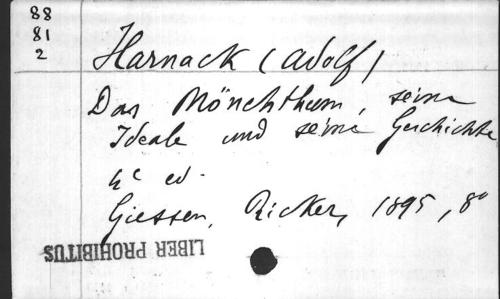 88
81
2
Harnack (Adolf)
Das Mönchthum, seine
Ideale und seine Geschichte
4e ed.
Giessen, Ricker, 1895, 8°
LIBER PROHIBITUS